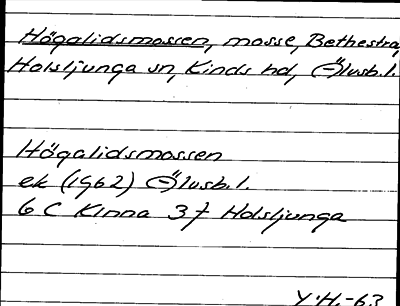 Högalidsmossen, mosse, Bethestra,
Holsljunga sn, Kinds hd, (-)Älvsb.l.
Högalidsmossen
ek (1962) (-)Älvsb.l.
6 C Kinna 3 f Holsljunga
Y.H.-63